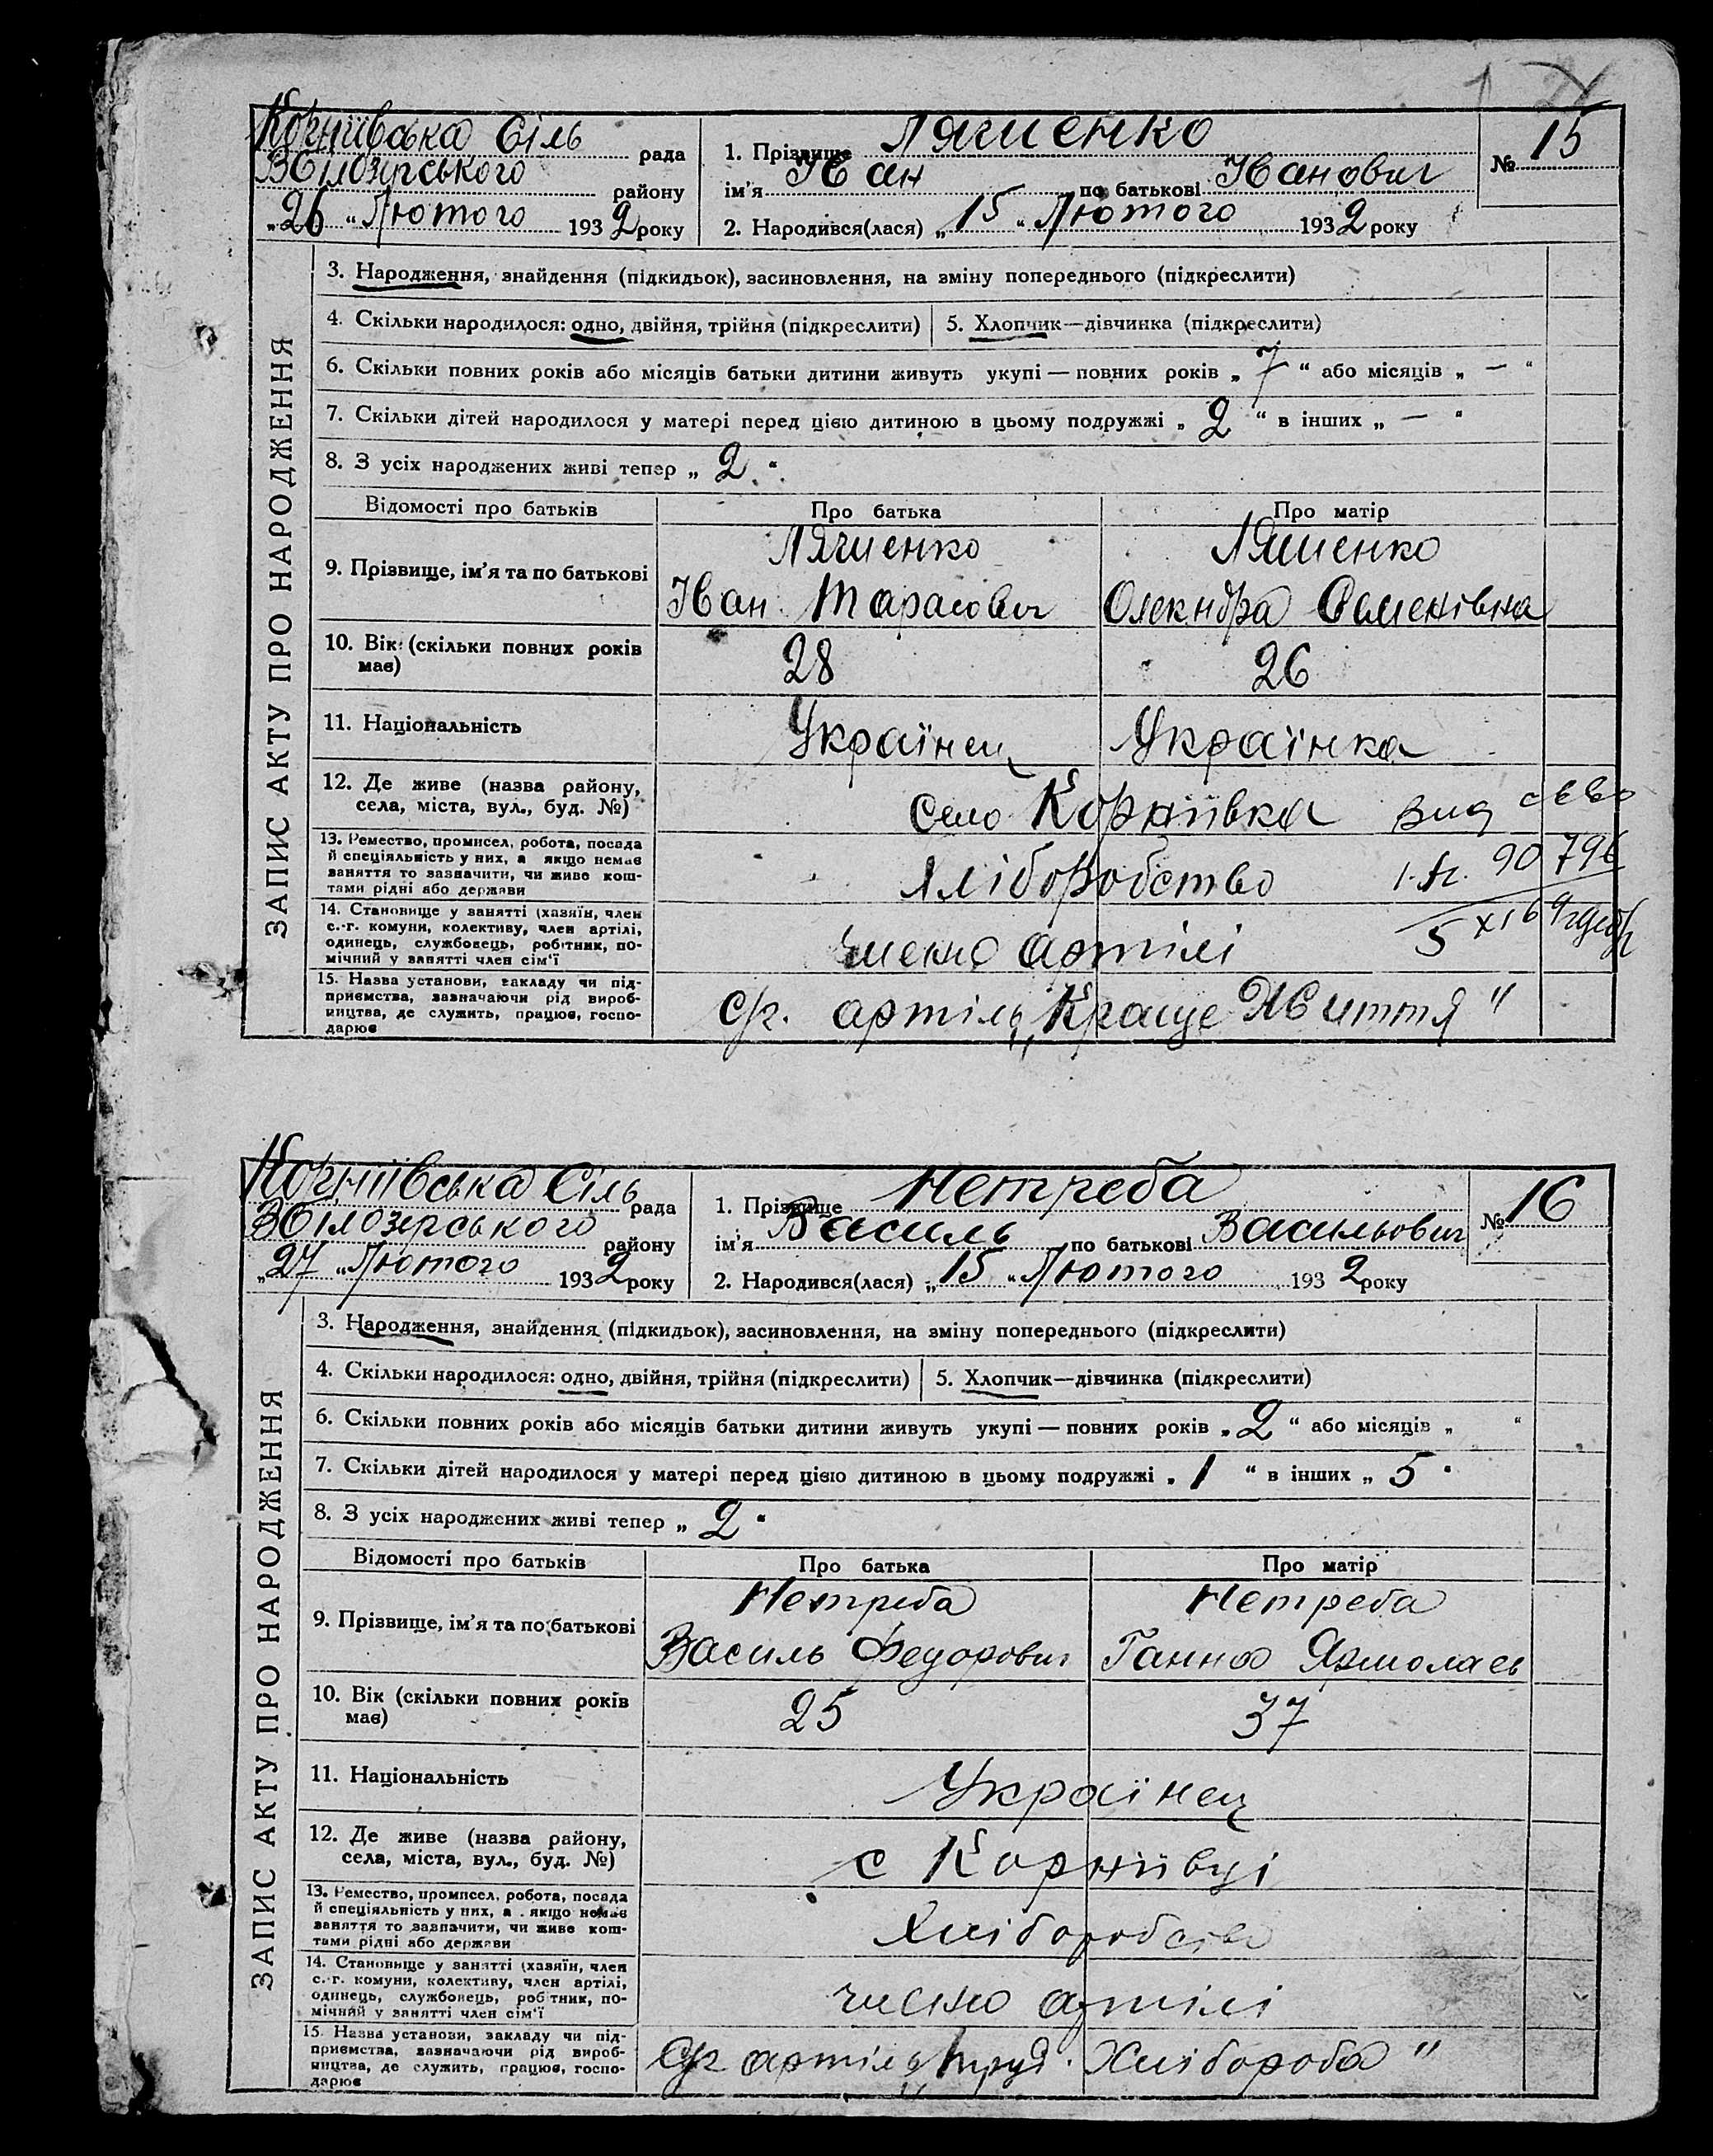 Корніївська Сіль рада
Збілозерського району
„26“ Лютого 1932 року
1. Прізвище Ляшенко
ім'я Іван по батькові Іванович
2. Народився(лася) „15“ Лютого 1932 року
№ 15
ЗАПИС АКТУ ПРО НАРОДЖЕННЯ
3. Народження, знайдення (підкидьок), засиновлення, на зміну попереднього (підкреслити)
4. Скільки народилося: одно, двійня, трійня (підкреслити) 5. Хлопчик—дівчинка (підкреслити)
6. Скільки повних років або місяців батьки дитини живуть укупі — повних років „7“ або місяців „—“
7. Скільки дітей народилося у матері перед цією дитиною в цьому подружжі „2“ в інших „—“
8. З усіх народжених живі тепер „2“
Відомості про батьків Про батька Про матір
Ляшенко Ляшенко
9. Прізвище, ім'я та по батькові
Іван Тарасович Олекндра Семенівна
10. Вік (скільки повних років має) 28 26
11. Національність Українец Українка
12. Де живе (назва району,
села, міста, вул., буд. №) село Корніївка
13. Ремество, промисел, робота, посада
й спеціяльність у них, а якщо немає
заняття то зазначити, чи живе кош-
тами рідні або держави
Хліборобство 90 796
14. Становище у занятті (хазяїн, член
с.-г. комуни, колективу, член артілі,
одинець, службовець, робітник, по-
мічний у занятті член сім'ї
члено артілі
15. Назва установи, закладу чи під-
приємства, зазначаючи рід вироб-
ництва, де служить, працює, госпо-
дарює
с/г. артіль „Краще Життя"
Корніївська Сіль рада
Збілозерського району
„27“ Лютого 1932 року
1. Прізвище Нетреба
ім'я Василь по батькові Васильович
2. Народився(лася) „15“ Лютого 1932 року
№ 16
ЗАПИС АКТУ ПРО НАРОДЖЕННЯ
3. Народження, знайдення (підкидьок), засиновлення, на зміну попереднього (підкреслити)
4. Скільки народилося: одно, двійня, трійня (підкреслити) 5. Хлопчик—дівчинка (підкреслити)
6. Скільки повних років або місяців батьки дитини живуть укупі — повних років „2“ або місяців „ “
7. Скільки дітей народилося у матері перед цією дитиною в цьому подружжі „1“ в інших „5“
8. З усіх народжених живі тепер „2“
Відомості про батьків Про батька Про матір
Нетреба Нетреба
9. Прізвище, ім'я та по батькові
Василь Федорович Ганна Ярмолаев
10. Вік (скільки повних років має) 25 37
11. Національність Українец
12. Де живе (назва району,
села, міста, вул., буд. №) с Корніївці
13. Ремество, промисел, робота, посада
й спеціяльність у них, а якщо немає
заняття то зазначити, чи живе кош-
тами рідні або держави
Хліборобства
14. Становище у занятті (хазяїн, член
с.-г. комуни, колективу, член артілі,
одинець, службовець, робітник, по-
мічний у занятті член сім'ї
члено артілі
15. Назва установи, закладу чи під-
приємства, зазначаючи рід вироб-
ництва, де служить, працює, госпо-
дарює
с/г артіль „труд. Хлібороба"